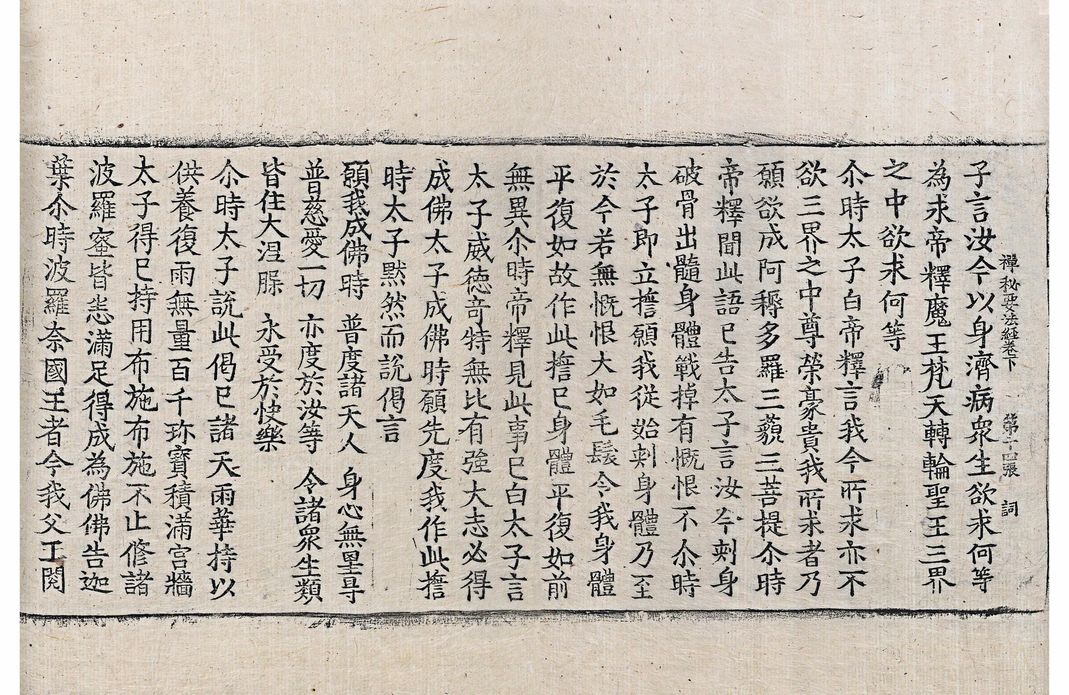 禪秘要法經卷下 第十四張 詞
子言汝今以身濟病衆生欲求何等
為求帝釋魔王梵天轉輪聖王三界
之中欲求何等
尒時太子白帝釋言我今所求亦不
欲三界之中尊榮豪貴我所求者乃
願欲成阿耨多羅三藐三菩提尒時
帝釋聞此語已告太子言汝今刺身
破骨出髓身體戰掉有慨恨不尒時
太子即立擔願我從始刺身體乃至
於今若無慨恨大如毛髮令我身體
平復如故作此擔已身體平復如前
無異尒時帝釋見此事已白太子言
太子威德奇特無比有強大志必得
成佛太子成佛時願先度我作此擔
時太子默然而說偈言
願我成佛時 普度諸天人 身心無罣㝵
普慈愛一切 亦度於汝等 令諸衆生類
皆住大涅槃 永受於快樂
尒時太子說此偈已諸天雨華持以
供養復雨無量百千珎寶積滿宮牆
太子得已持用布施布施不止修諸
波羅蜜皆悉滿足得成為佛佛告迦
葉尒時波羅奈國王者今我父王閱